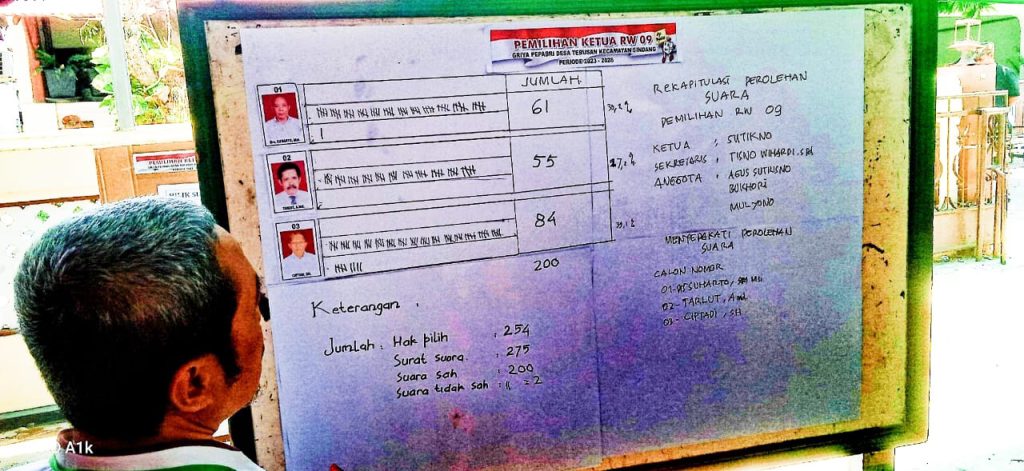 PEMILIHAN KETUA RW 09
GRIYA PEPABRI DESA TERUSAN KECAMATAN SINDANG
PERIODE 2023 - 2026
JUMLAH
01
61
02
55
03
84
200
Keterangan :
Jumlah : Hak pilih : 254
Surat suara : 275
Suara sah : 200
Suara tidak sah : = 2
REKAPITULASI PEROLEHAN
SUARA
PEMILIHAN RW 09
KETUA : SUTIKNO
SEKRETARIS : TISNO WIHARDI
ANGGOTA : AGUS SUTRISNO
BUKHORI
MULYONO
MENYEPAKATI PEROLEHAN
SUARA
CALON NOMOR
01- SUHARTO,
02- TARLUT, A.md
03- CIPTADI, SH
PEMILIHAN KETUA RW 09
A1k